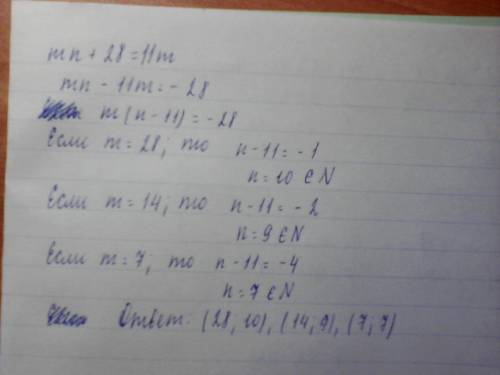 mn + 28 = 11m
mn - 11m = - 28
m (n - 11) = - 28
Если m = 28, то n - 11 = - 1
n = 10 ∈ N
Если m = 14, то n - 11 = - 2
n = 9 ∈ N
Если m = 7, то n - 11 = - 4
n = 7 ∈ N
Ответ: (28, 10), (14; 9), (7; 7)